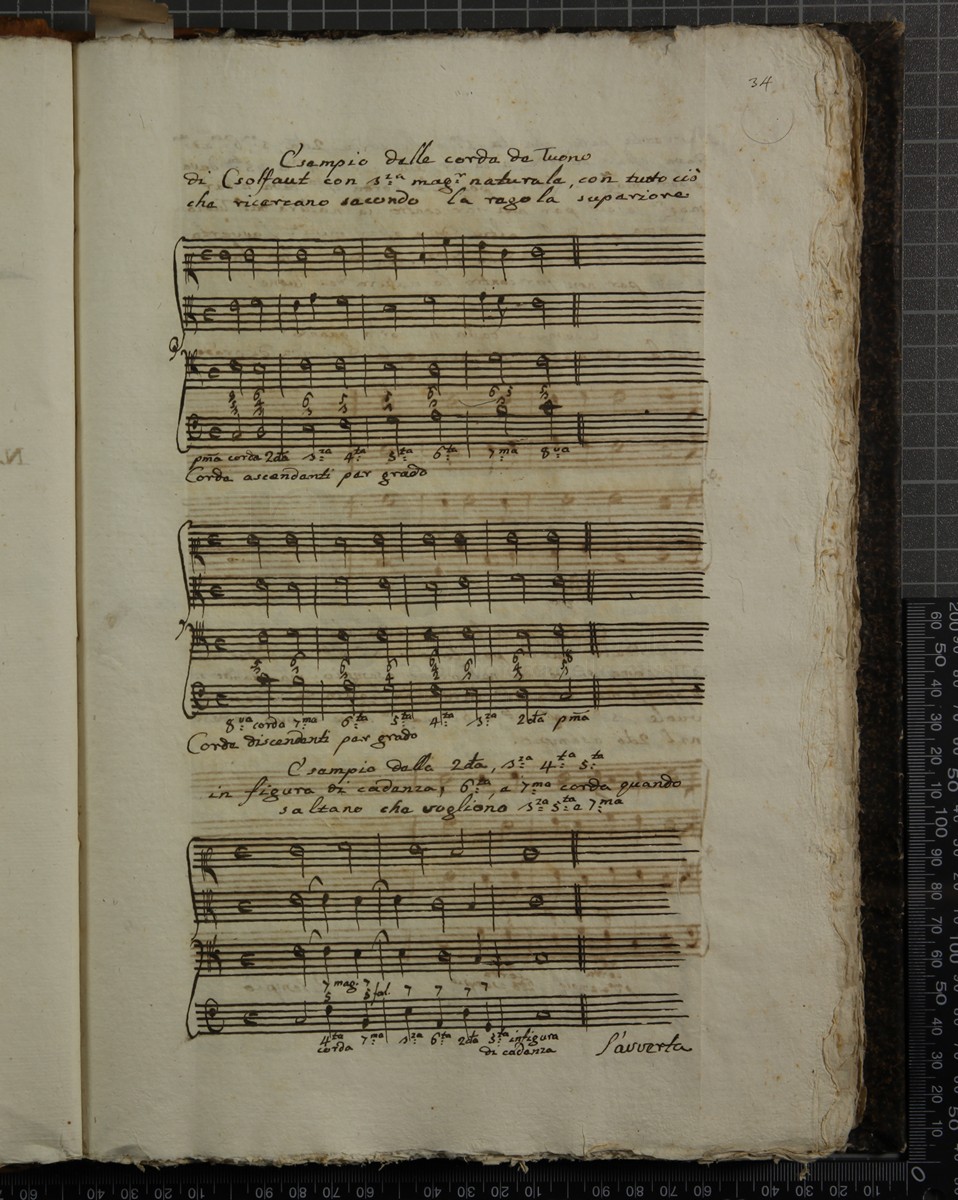 34
Esempio delle corde de Tuono
di Csolfaut con 3:za mag:r naturale, con tutto ciò
che ricercano secondo la regola superiore
pma corda 2da 3:za 4:ta 5:ta 6:ta 7:ma 8:va
Corde ascendenti per grado
8:va corda 7:ma 6:ta 5:ta 4:ta 3:za 2da pma
Corde discendenti per grado
Esempio della 2da, 3:za 4:ta 5:ta
in figura di cadenza, 6:ta, e 7:ma corda quando
saltano che vogliono 3:za 5:ta e 7:ma
7 mag. 7 7 7 7 7
5 5 fal.
4:ta 7:ma 3:za 6:ta 2da 5:ta in figura
corda di cadenza
S'avverta